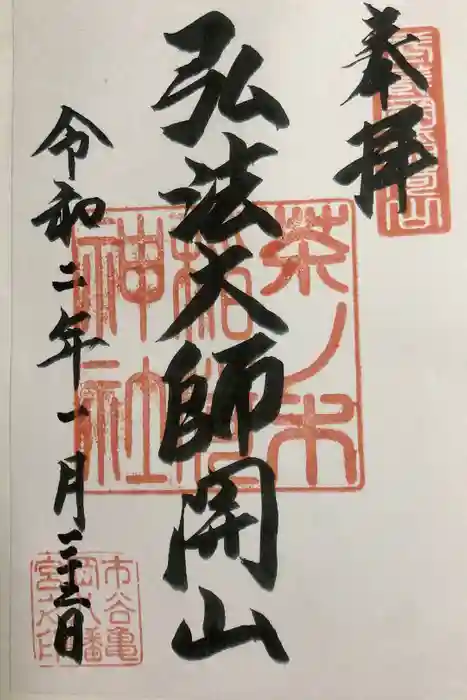 奉拝
弘法大師開山
令和二年一月二十三日
茶ノ木
稲荷
神社
市谷亀
岡八幡
宮之印